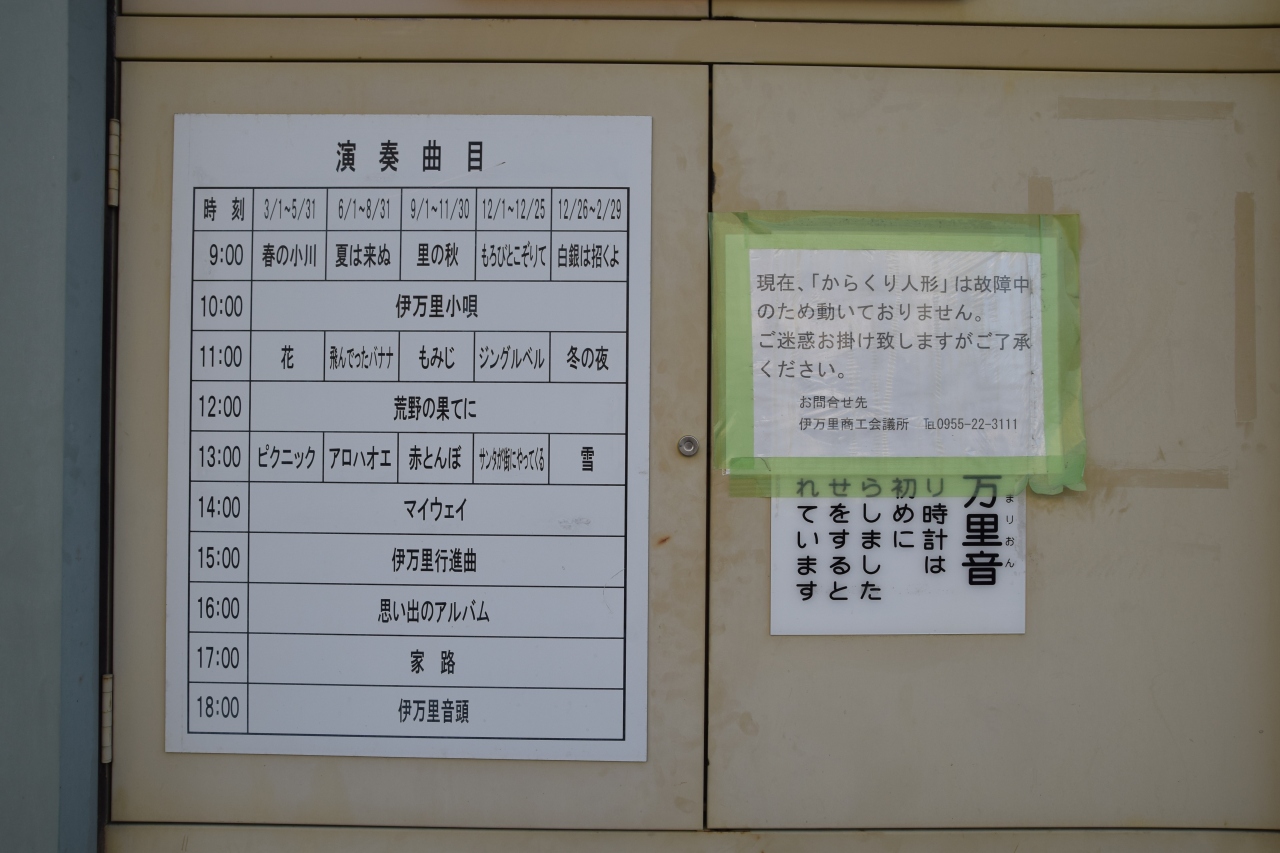 演奏曲目
時刻 3/1~5/31 6/1~8/31 9/1~11/30 12/1~12/25 12/26~2/29
9:00 春の小川 夏は来ぬ 里の秋 もろびとこぞりて 白銀は招くよ
10:00 伊万里小唄
11:00 花 飛んでったバナナ もみじ ジングルベル 冬の夜
12:00 荒野の果てに
13:00 ピクニック アロハオエ 赤とんぼ サンタが街にやってくる 雪
14:00 マイウェイ
15:00 伊万里行進曲
16:00 思い出のアルバム
17:00 家路
18:00 伊万里音頭
現在、「からくり人形」は故障中
のため動いておりません。
ご迷惑お掛け致しますがご了承
ください。
お問合せ先
伊万里商工会議所 ℡0955-22-3111
万里音
まりおん
り時計は
初めに
らしました
せをすると
れています